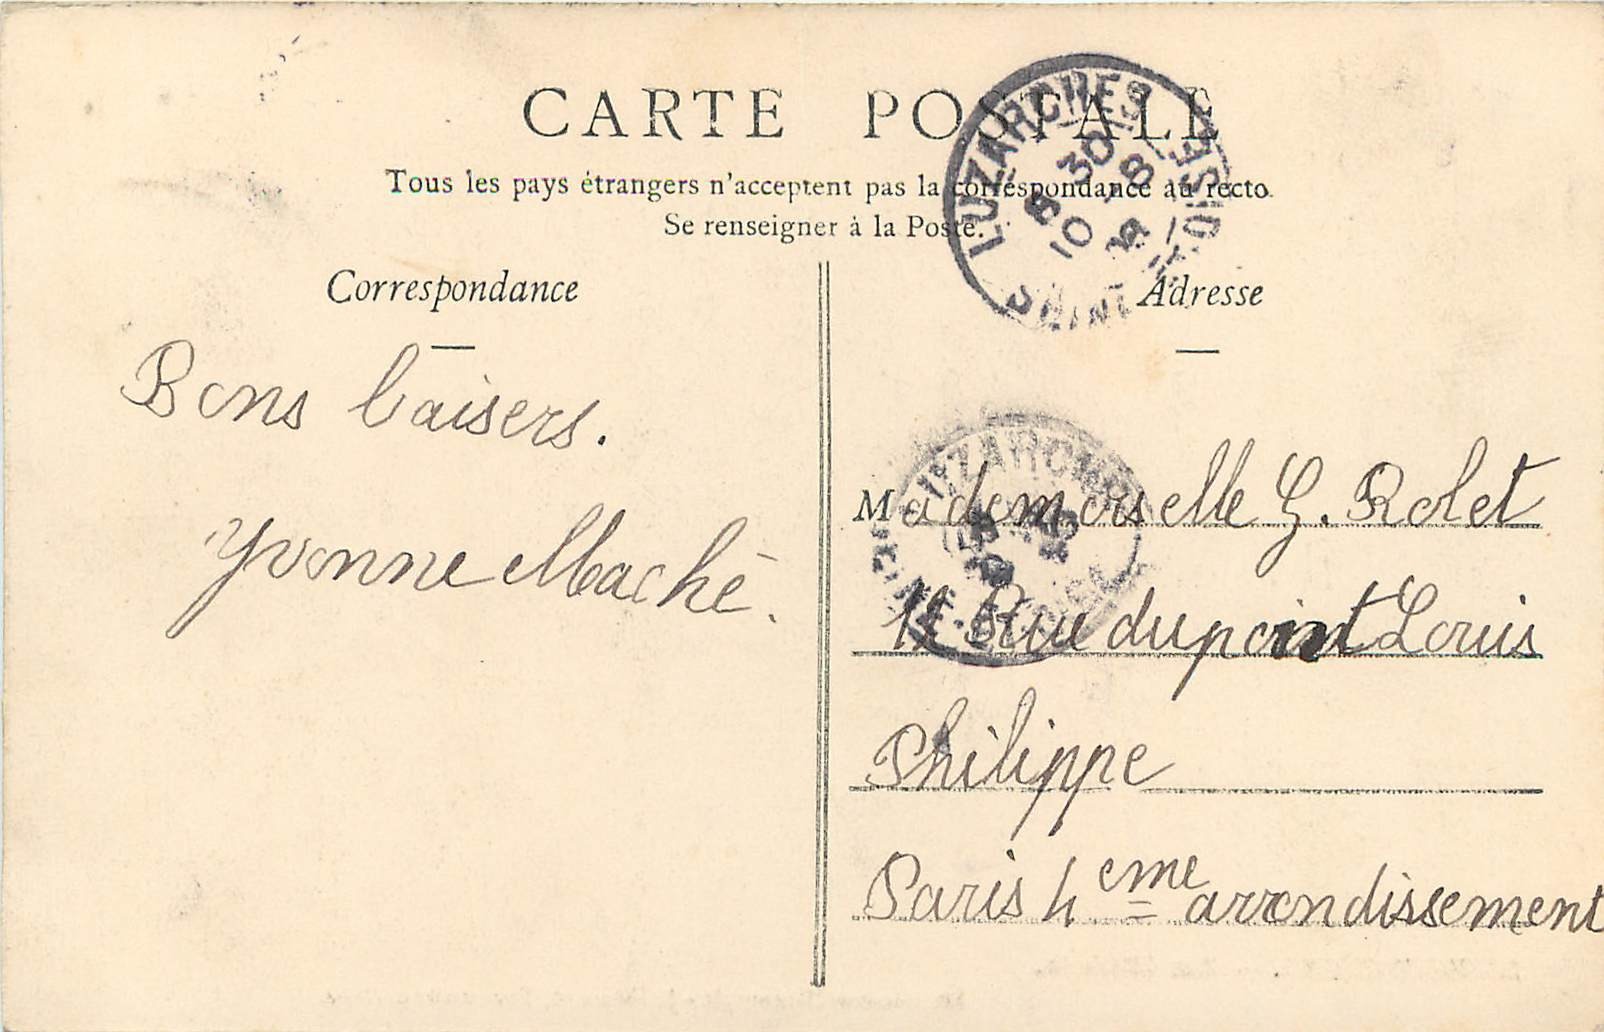 CARTE POSTALE
Tous les pays étrangers n'acceptent pas la correspondance au recto.
Se renseigner à la Poste.
LUZARCHES
8 30
10 -8
SEINE-ET-OISE
Correspondance
Adresse
Bons baisers.
Yvonne Maché.
LUZARCHES
Mademoiselle G. Rolet
11 Rue du pont Louis
Philippe
Paris 4eme arrondissement